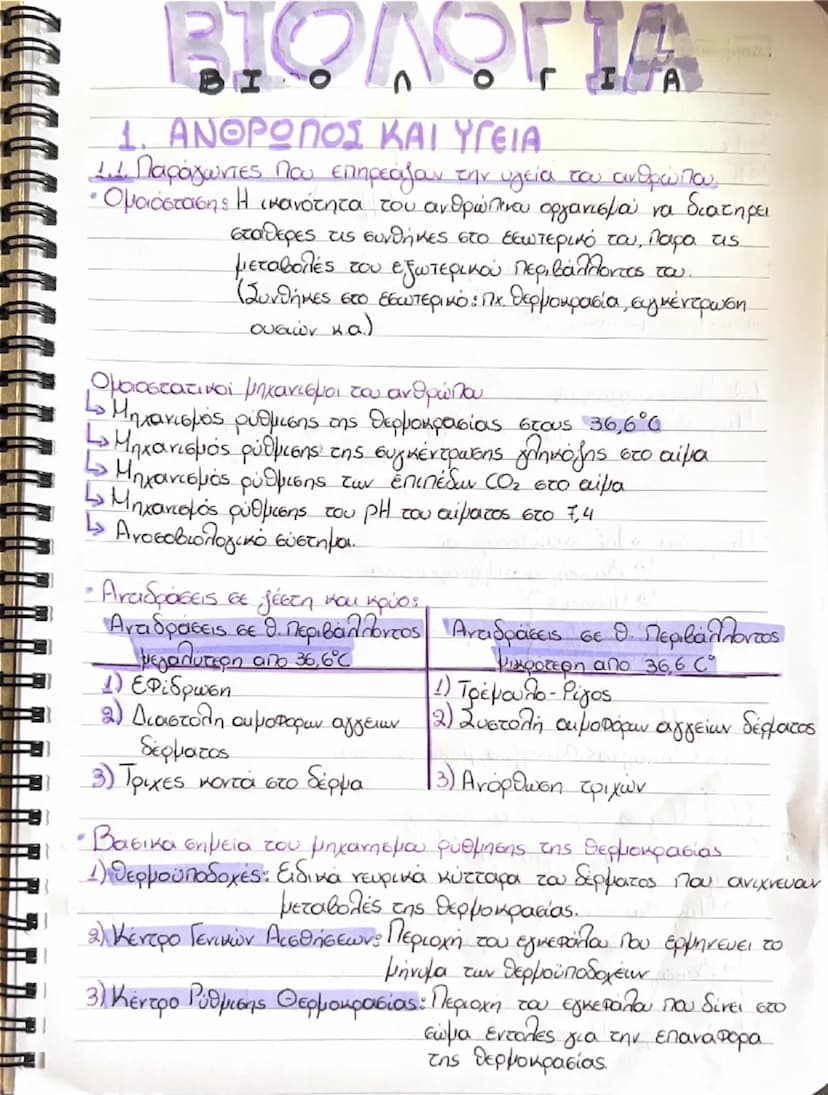 ΒΙΟΛΟΓΙΑ
ΒΙΟΛΟΓΙΑ
1. ΑΝΘΡΩΠΟΣ ΚΑΙ ΥΓΕΙΑ
1.1 Παράγωντες που επηρεάζουν την υγεία του ανθρώπου.
• Ομοιόσταση: Η ικανότητα του ανθρώπινου οργανισμού να διατηρεί
σταθερες τις συνθήκες στο εσωτερικό του, παρα τις
μεταβολές του εξωτερικού περιβάλλοντος του.
(Συνθήκες στο εσωτερικό: πχ. θερμοκρασία, συγκέντρωση
ουσιών κ.α.)
Ομοιοστατικοί μηχανισμοι του ανθρώπου
↳ Μηχανισμός ρύθμισης της θερμοκρασίας στους 36,6°C
↳ Μηχανισμός ρύθμισης της συγκέντρωσης γληκόζης στο αίμα
↳ Μηχανισμός ρύθμισης των επιπέδων CO₂ στο αίμα
↳ Μηχανισμός ρύθμισης του pH του αίματος στο 7,4
↳ Ανοσοβιολογικό σύστημα.
• Αντιδράσεις σε ζέστη και κρύο:
Αντιδράσεις σε θ. περιβάλλοντος
μεγαλυτερη απο 36,6°C
1) ΕΦίδρωση
2) Διαστολη αιμοφορων αγγειων
δέρματος
3) Τριχες κοντά στο δέρμα
Αντιδράσεις σε θ. περιβάλλοντος
μικροτερη απο 36,6 C°
1) Τρέμουλο - Ρίγος
2) Συστολή αιμοφόρων αγγείων δέρματος
3) Ανόρθωση τριχών
• Βασικά σημεία του μηχανισμου ρύθμησης της θερμοκρασίας
1) Θερμοϋποδοχές: Ειδικά νευρικά κύτταρα του δέρματος που ανιχνευουν
μεταβολές της θερμοκρασίας.
2) Κέντρο Γενικών Αισθήσεων: Περιοχή του εγκεφάλου που ερμηνευει το
μήνυμα των θερμοϋποδοχέων
3) Κέντρο Ρύθμισης Θερμοκρασίας: Περιοχη του εγκεφάλου που δίνει στο
σώμα εντολες για την επαναφορα
της θερμοκρασίας.